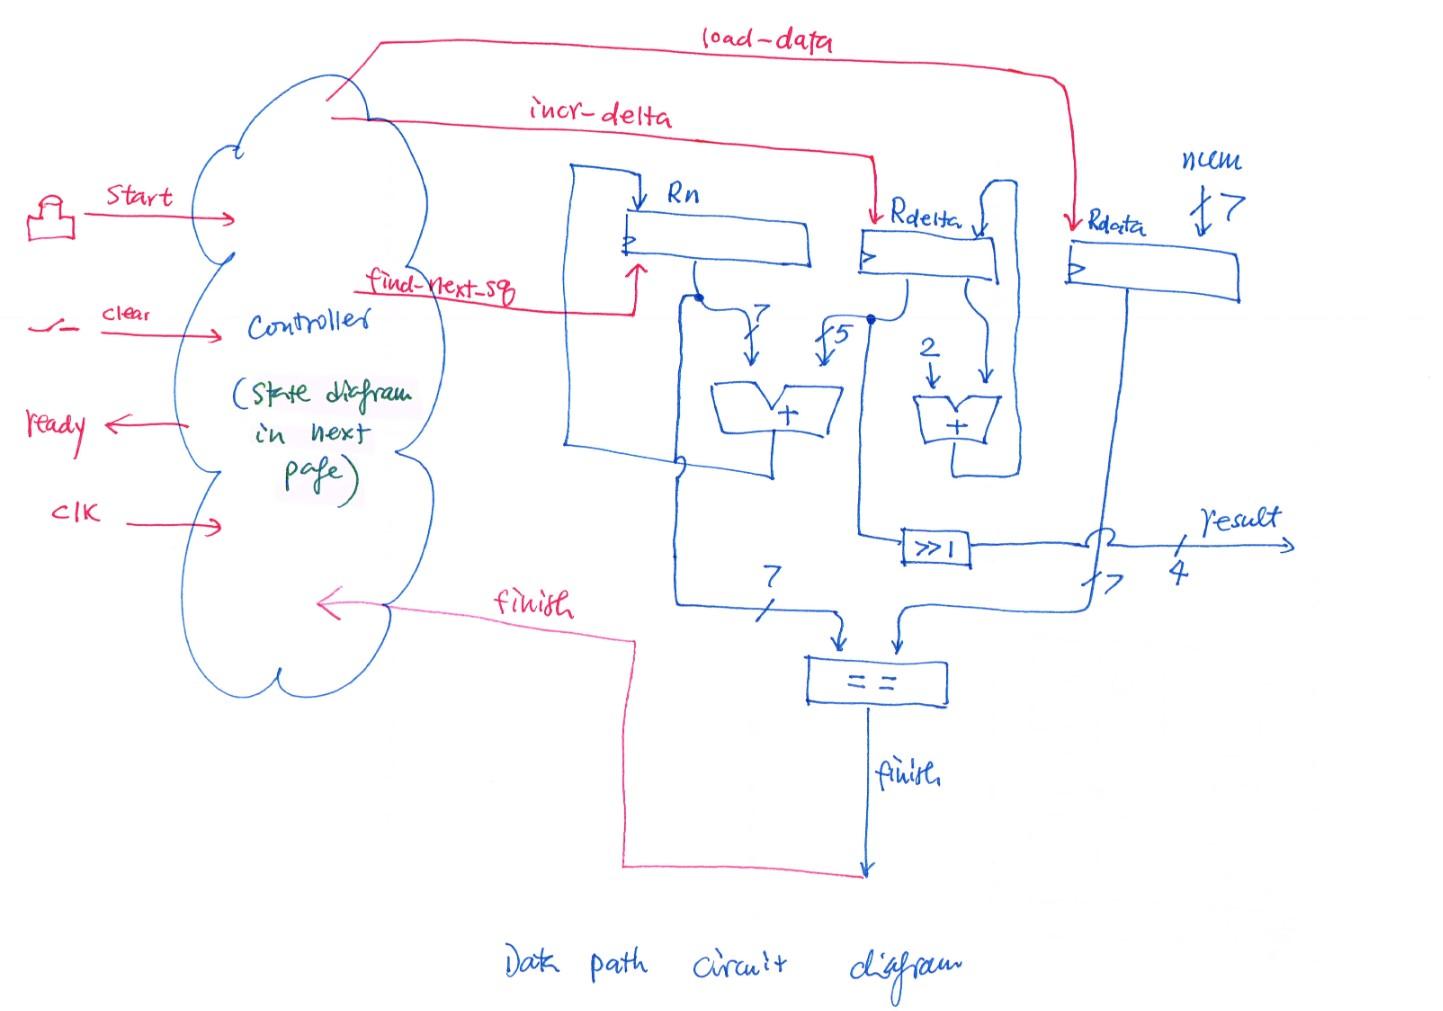 load-data
incr-delta
num
7
Start
Rn
Rdelta
Rdata
find-next-sq
clear
Controller
7
5
2
(State diagram
in next
page)
ready
+
+
clk
result
>>1
4
7
7
finish
==
finish
Data path circuit diagram